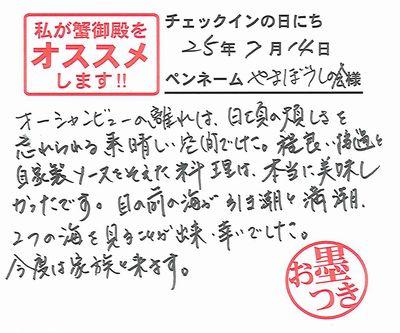 私が蟹御殿を
オススメ
します!!
チェックインの日にち
25年7月14日
ペンネーム やまぼうしの会様
オーシャンビューの離れは、日頃の煩しさを
忘れられる素晴しい空間でした。程良い接遇と
自家製ソースをそえた料理は、本当に美味し
かったです。目の前の海が引き潮と満潮、
2つの海を見ることが出来、幸いでした。
今度は家族と来ます。
お墨
つき